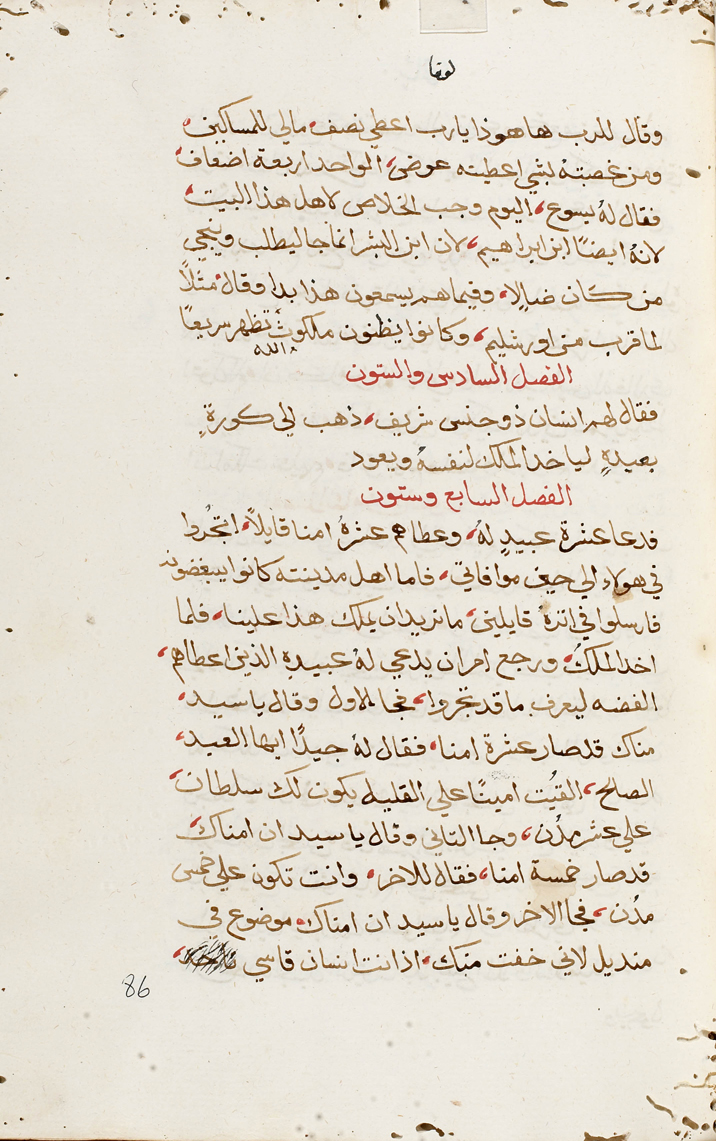 لوقا
وقال للرب هاهوذا يارب اعطي نصف مالي للمساكين،
ومن غصبته بشي اعطيته عوض، الواحد اربعة اضعاف
فقال لهُ يسوع، اليوم وجب الخلاص لاهل هذا البيت،
لانهُ ايضًا ابن ابراهيم، لان ابن البشر انما جا ليطلب وينجي
من كان ضالا، وفيما هم يسمعون هذا بدا وقال مثلاً
لما قرب من اورشليم، وكانوا يظنون ملكوت تظهر سريعًا
^ الله
الفصل السادس والستون
فقال لهم انسان ذو جنس شريف، ذهب الي كورةٍ
بعيدةٍ لياخد الملك لنفسهُ ويعود
الفصل السابع وستون
فدعا عشرة عبيدٍ لهُ، وعطاهم عشرةُ امنا قايلاً، اتجُروا
في هولاء الي حين موافاتي، فاما اهل مدينته كانوا يبغضونه
فارسلوا في اثرهُ قايلين، ما نريد ان يملك هذا علينا، فلما
اخد الملكُ، ورجع امر ان يدعي لهُ عبيدهِ الذين اعطاهم،
الفضه ليعرف ما قد تجروا، فجا الاول وقال ياسيد،
مناك قد صار عشرة امنا، فقال لهُ جيدًا ايها العبد،
الصلح، الفيُت امينًا علي القليل يكون لك سلطان،
علي عشر مدُن، وجا التاني وقال ياسيد ان امناك
قد صار خمسة امنا، فقال للاخر، وانت تكون علي خمس
مدُن، فجا الاخر وقال ياسيد ان امناك، موضوع في
منديل لاني خفت منك، اذ انت انسان قاسي
86